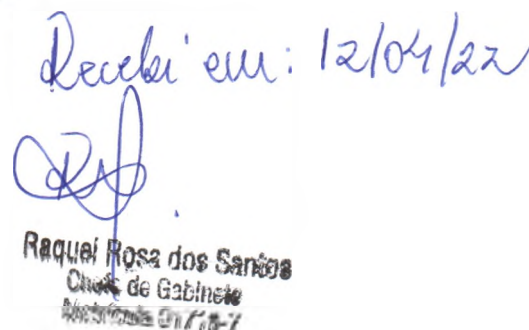 Recebi em: 12/04/22
Raquel Rosa dos Santos
Chefe de Gabinete
Matrícula